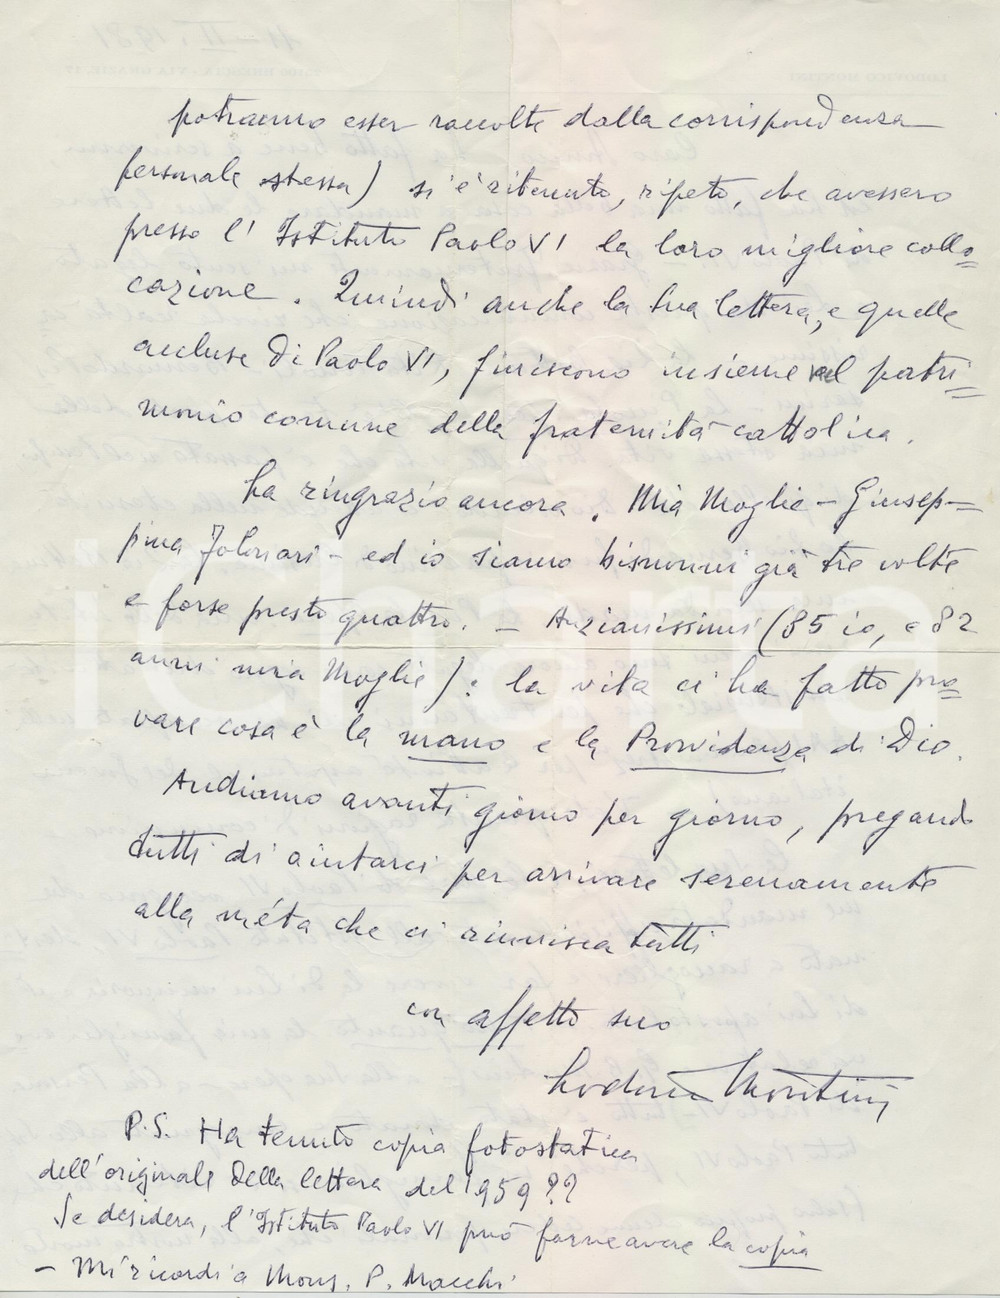 potranno esser raccolte dalla corrispondenza
personale stessa) si è ritenuto, ripeto, che avessero
presso l'Istituto Paolo VI la loro migliore collo=
cazione. Quindi anche la Sua lettera, e quelle
accluse di Paolo VI, finiscono insieme nel patri=
monio comune della fraternità cattolica.
La ringrazio ancora. Mia Moglie - Giusep=
pina Folonari - ed io siamo bisnonni già tre volte
e forse presto quattro. - Anzianissimi (85 io, e 82
anni mia Moglie): la vita ci ha fatto pro=
vare cosa è la mano e la Provvidenza di Dio.
Andiamo avanti giorno per giorno, pregando
tutti di aiutarci per arrivare serenamente
alla méta che ci riunisca tutti
con affetto suo
Lodovico Montini
P.S. Ha tenuto copia fotostatica
dell'originale della lettera del 1959??
Se desidera, l'Istituto Paolo VI può farne avere la copia
- Mi ricordi a Mons. P. Macchi
iCharta